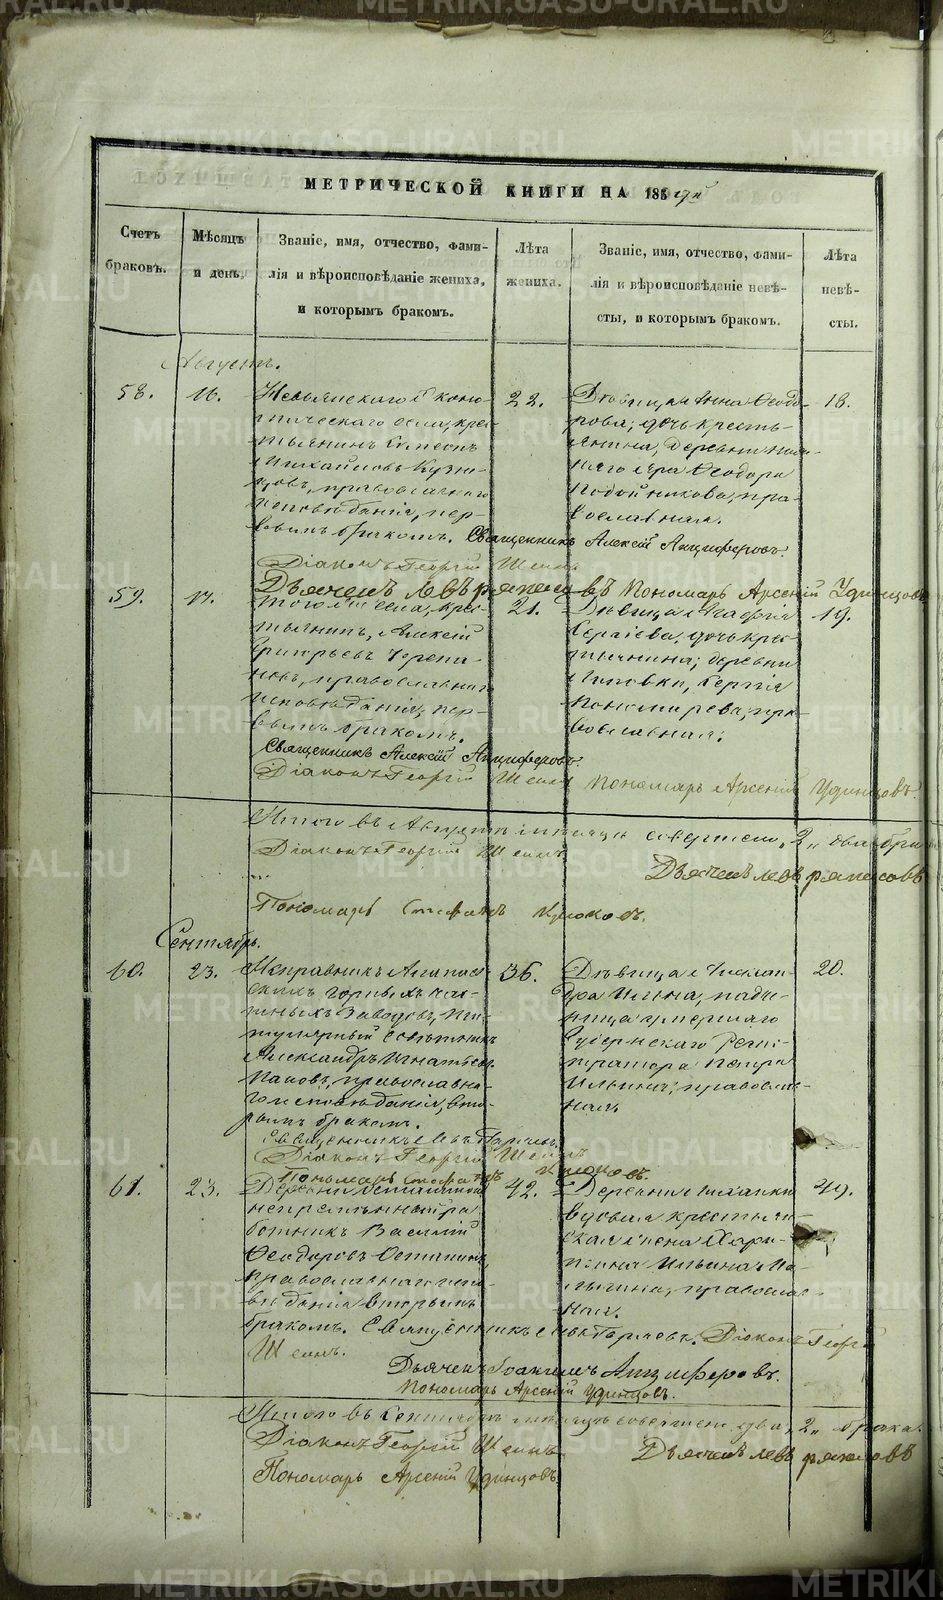 МЕТРИЧЕСКОЙ КНИГИ НА 185 годъ
Счетъ браковъ.
Мѣсяцъ и день.
Званіе, имя, отчество, фами-
лія и вѣроисповѣданіе жениха,
и которымъ бракомъ.
Лѣта жениха.
Званіе, имя, отчество, фами-
лія и вѣроисповѣданіе невѣ-
сты, и которымъ бракомъ.
Лѣта невѣ-
сты.
Августъ.
58.
16.
Невьянскаго
села, кре-
стьянинъ
Михайловъ Кузне-
цовъ, православнаго
исповѣданія, пер-
вымъ бракомъ.
22.
Дѣвица Анна Ѳеодо-
рова, дочь кресть-
янина, деревни
Ѳеодора
Подойникова, пра-
вославная.
18.
Священникъ Алексій Анциферовъ.
Діаконъ Георгій Шеинъ
Дьячекъ Левъ Пономарь Арсеній Удинцовъ
59.
17.
Тогоже села, кре-
стьянинъ, Алексій
Григорьевъ Черепа-
новъ, православнаго
исповѣданія, пер-
вымъ бракомъ.
21.
Дѣвица
Сергіева, дочь кре-
стьянина, деревни
Липовки, Сергія
Пономарева, пра-
вославная.
19.
Священникъ Алексій Анциферовъ
Діаконъ Георгій Шеинъ Пономарь Арсеній Удинцовъ.
Итого въ Августѣ мѣсяцѣ совершено „2„ два бра
Діаконъ Георгій Шеинъ
Дьячекъ Левъ
Пономарь Стефанъ Крюковъ.
Сентябрь.
60.
23.
Исправникъ Алапаев-
скихъ Горныхъ част-
ныхъ Заводовъ, Ти-
тулярный Совѣтникъ
Александръ Игнатьевъ
Паповъ, православна-
го исповѣданія, вто-
рымъ бракомъ.
36.
Дѣвица Алексан-
дра Ильина,
умершаго
Губернскаго Реги-
стратора Петра
Ильина, православ-
ная.
20.
Священникъ Левъ
Діаконъ Георгій Шеинъ
Пономарь Стефанъ Крюковъ.
61.
23.
Деревни Останиной
непремѣнный ра-
ботникъ Василій
Ѳеодоровъ Останинъ,
православнаго испо-
вѣданія вторымъ
бракомъ.
42.
Деревни
вдовая крестьян-
ская жена Хари-
тина Ильина
православ-
ная.
49.
Священникъ Левъ Діаконъ Георгій
Шеинъ.
Дьячекъ Іоакимъ Анциферовъ.
Пономарь Арсеній Удинцовъ.
Итого въ Сентябрѣ мѣсяцѣ совершено два „2„ брака.
Діаконъ Георгій Шеинъ
Дьячекъ Левъ
Пономарь Арсеній Удинцовъ
METRIKI.GASO-URAL.RU